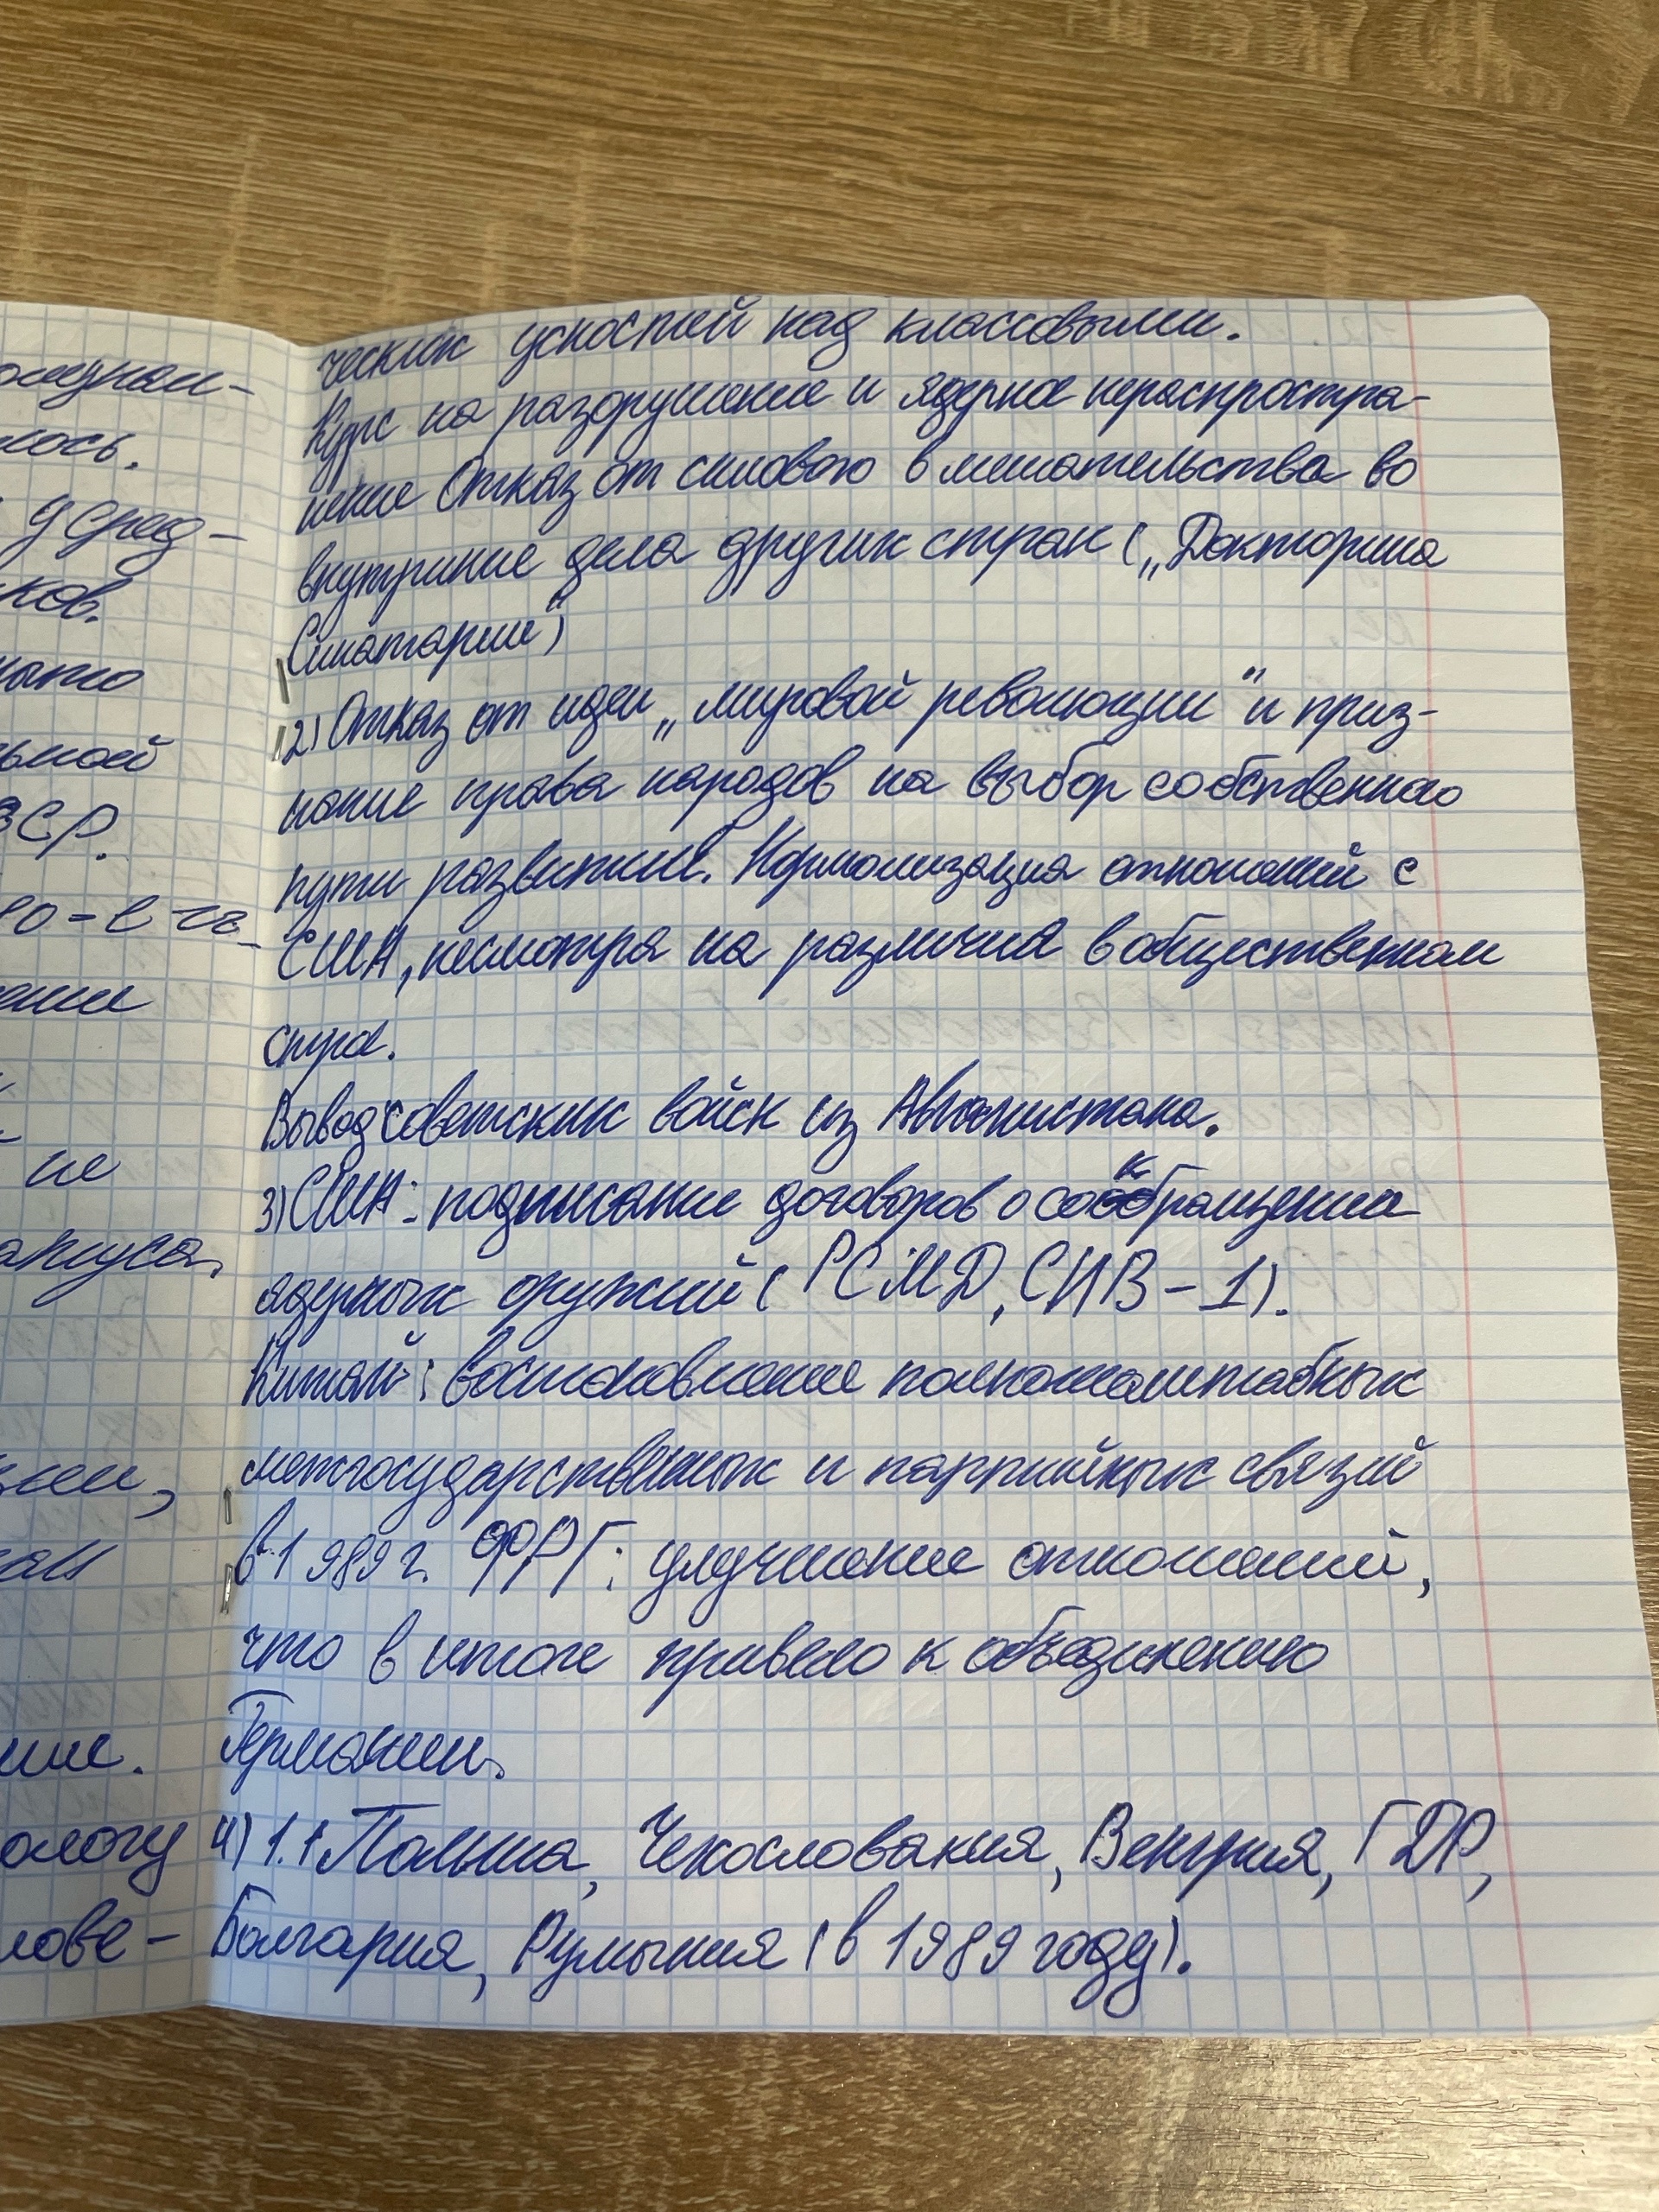 ческих ценостей над классовыми.
Курс на разоружение и ядерное нераспростра-
нение Отказ от силового вмешательства во
внутриние дела других стран („Докторина
Синатарии")
2) Отказ от идеи „мировой революции" и приз-
нание права народов на выбор собственного
пути развития. Нормализация отношений с
США, несмотря на различия в общественном
строе.
Вывод советских войск из Афганистана.
3) США: подписание договоров о сокбращении
ядерных оружий (РСМД, СНВ-1).
Китай: востановление полномаштабных
межгосударственных и партийных связий
в 1989 г. ФРГ: улучшение отношений,
что в итоге привело к объединению
Германии.
4) 1.1 Польша, Чехословакия, Венгрия, ГДР,
Болгария, Румыния (в 1989 году).
лось.
у сред-
ков.
ЗСР.
не
логу
лове-